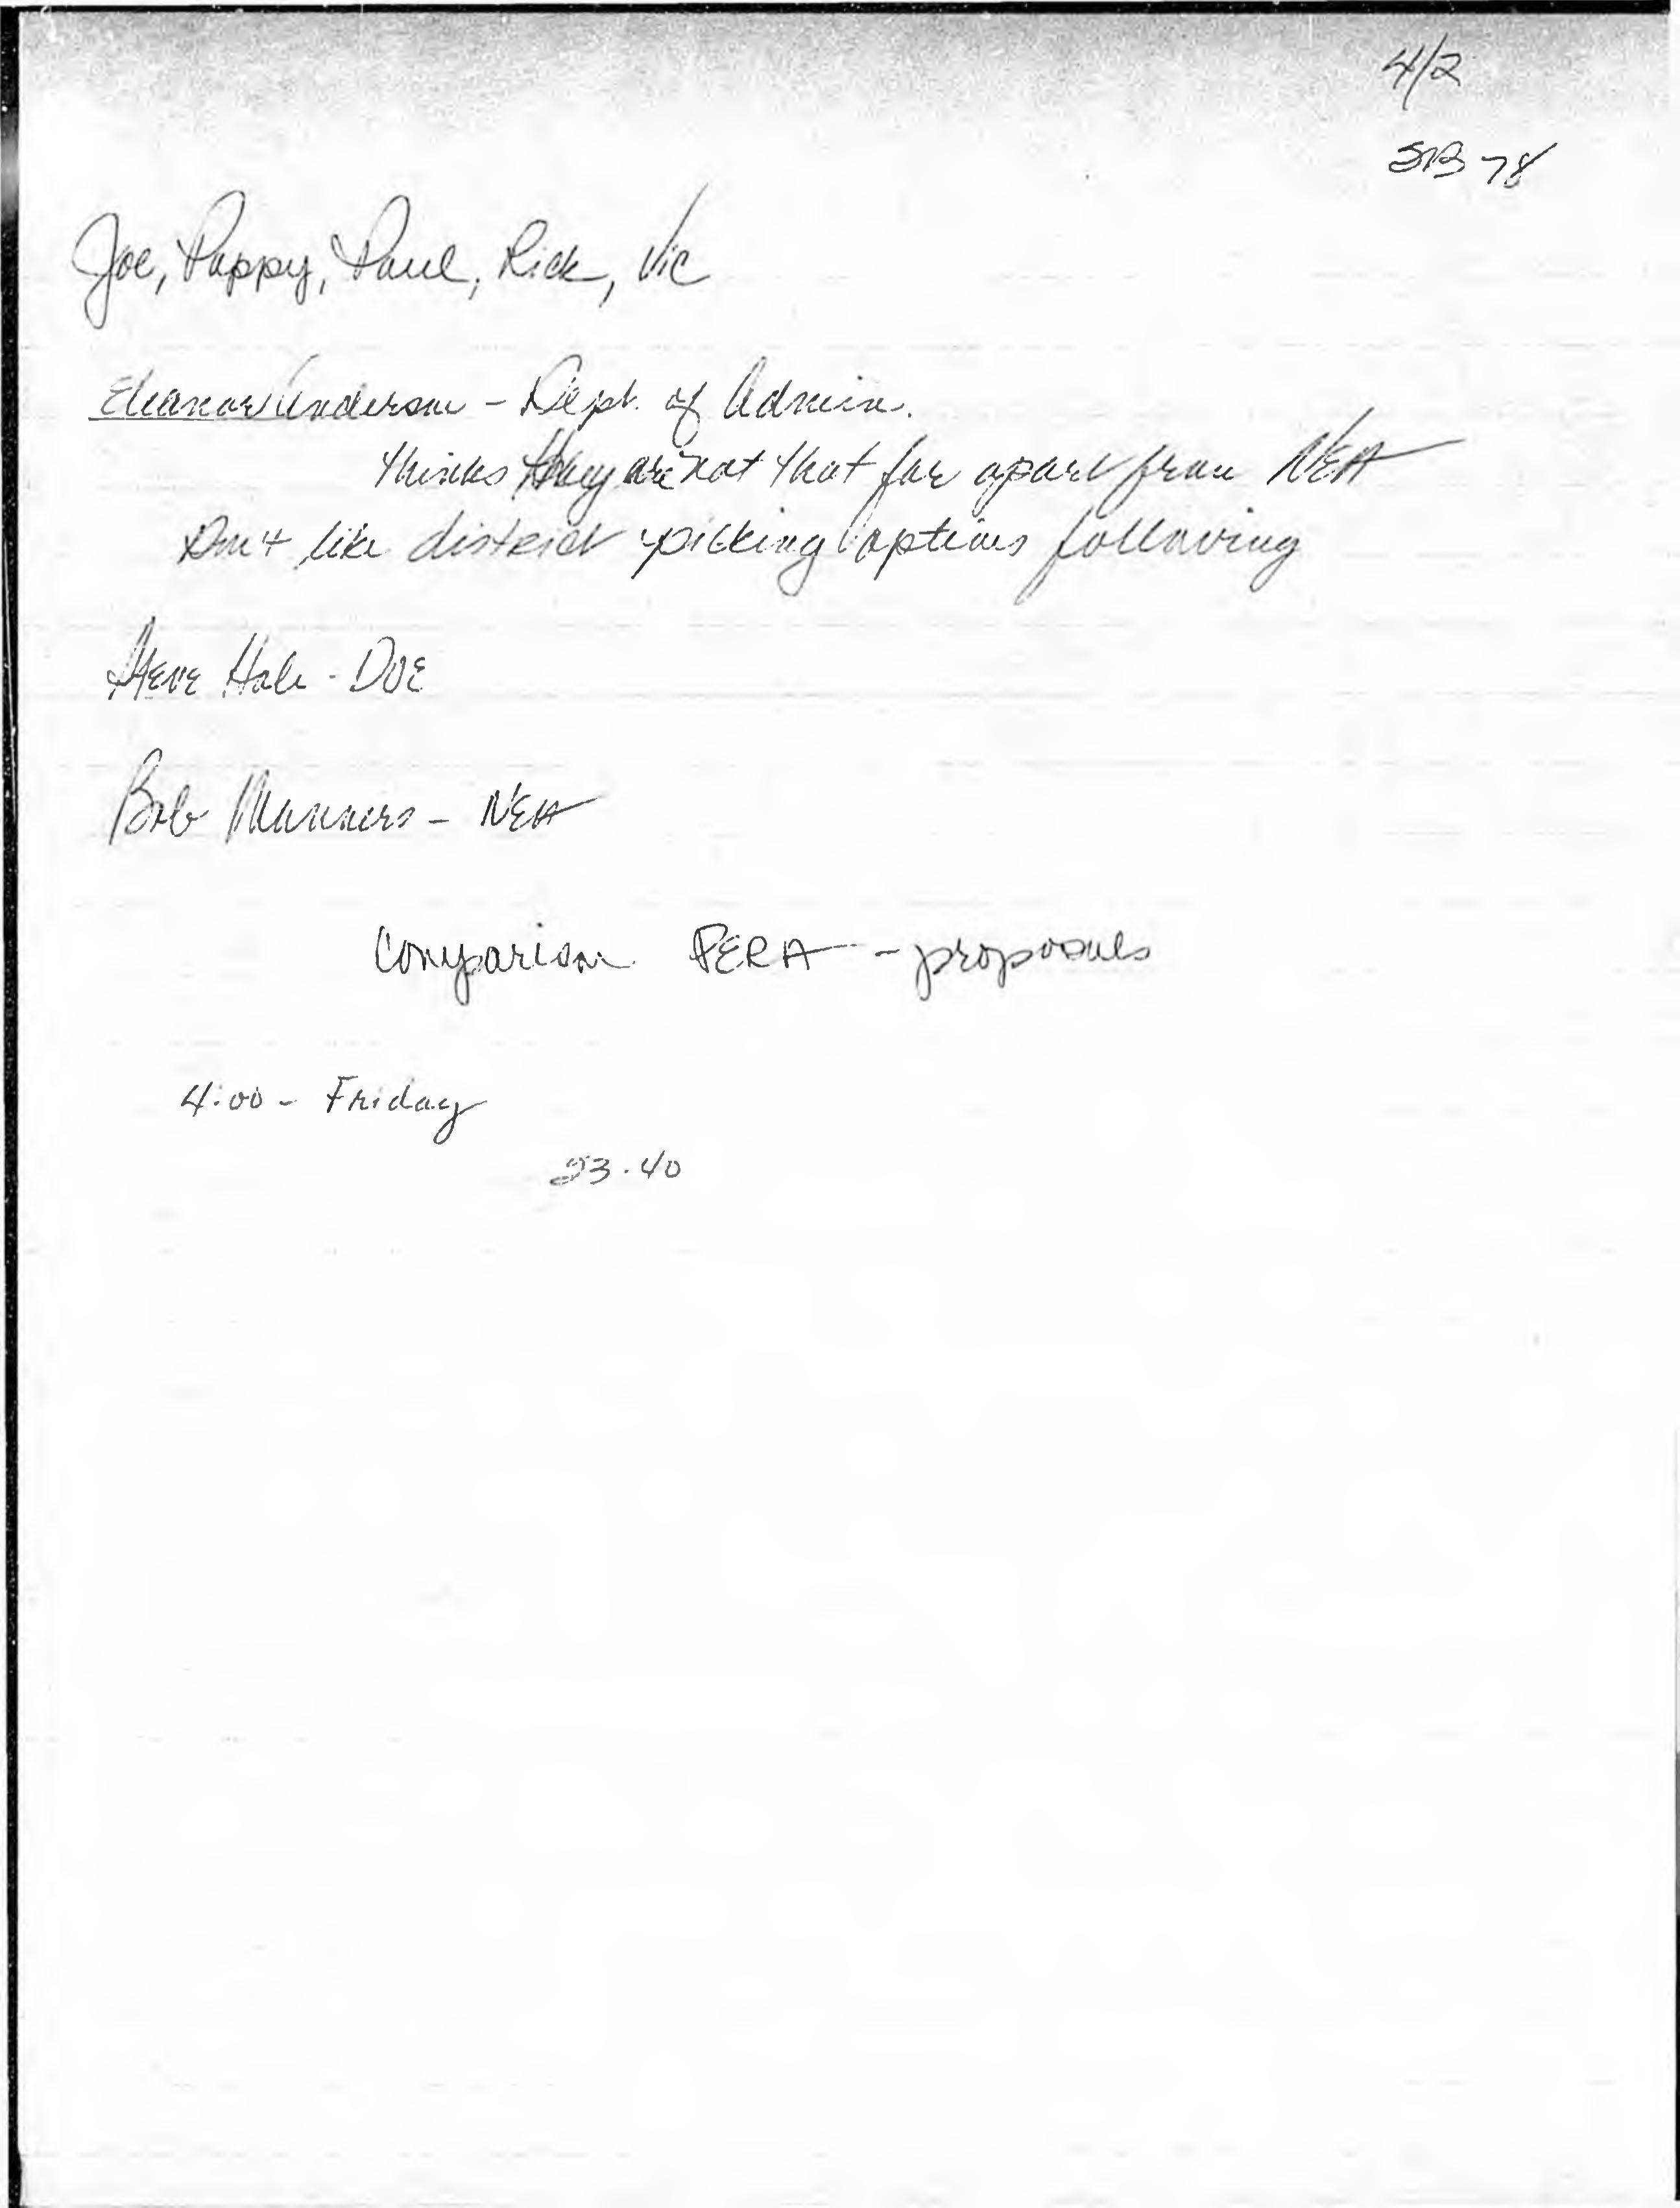 4/2
SB 78
Joe, Pappy, Paul, Rick, Vic
Eleanor Anderson - Dept. of Admin.
thinks they are not that far apart from NEA
Don't like district picking options following
Steve Hole - DOE
Bob Manners - NEA
Comparison PERA - proposals
4:00 - Friday
23.40